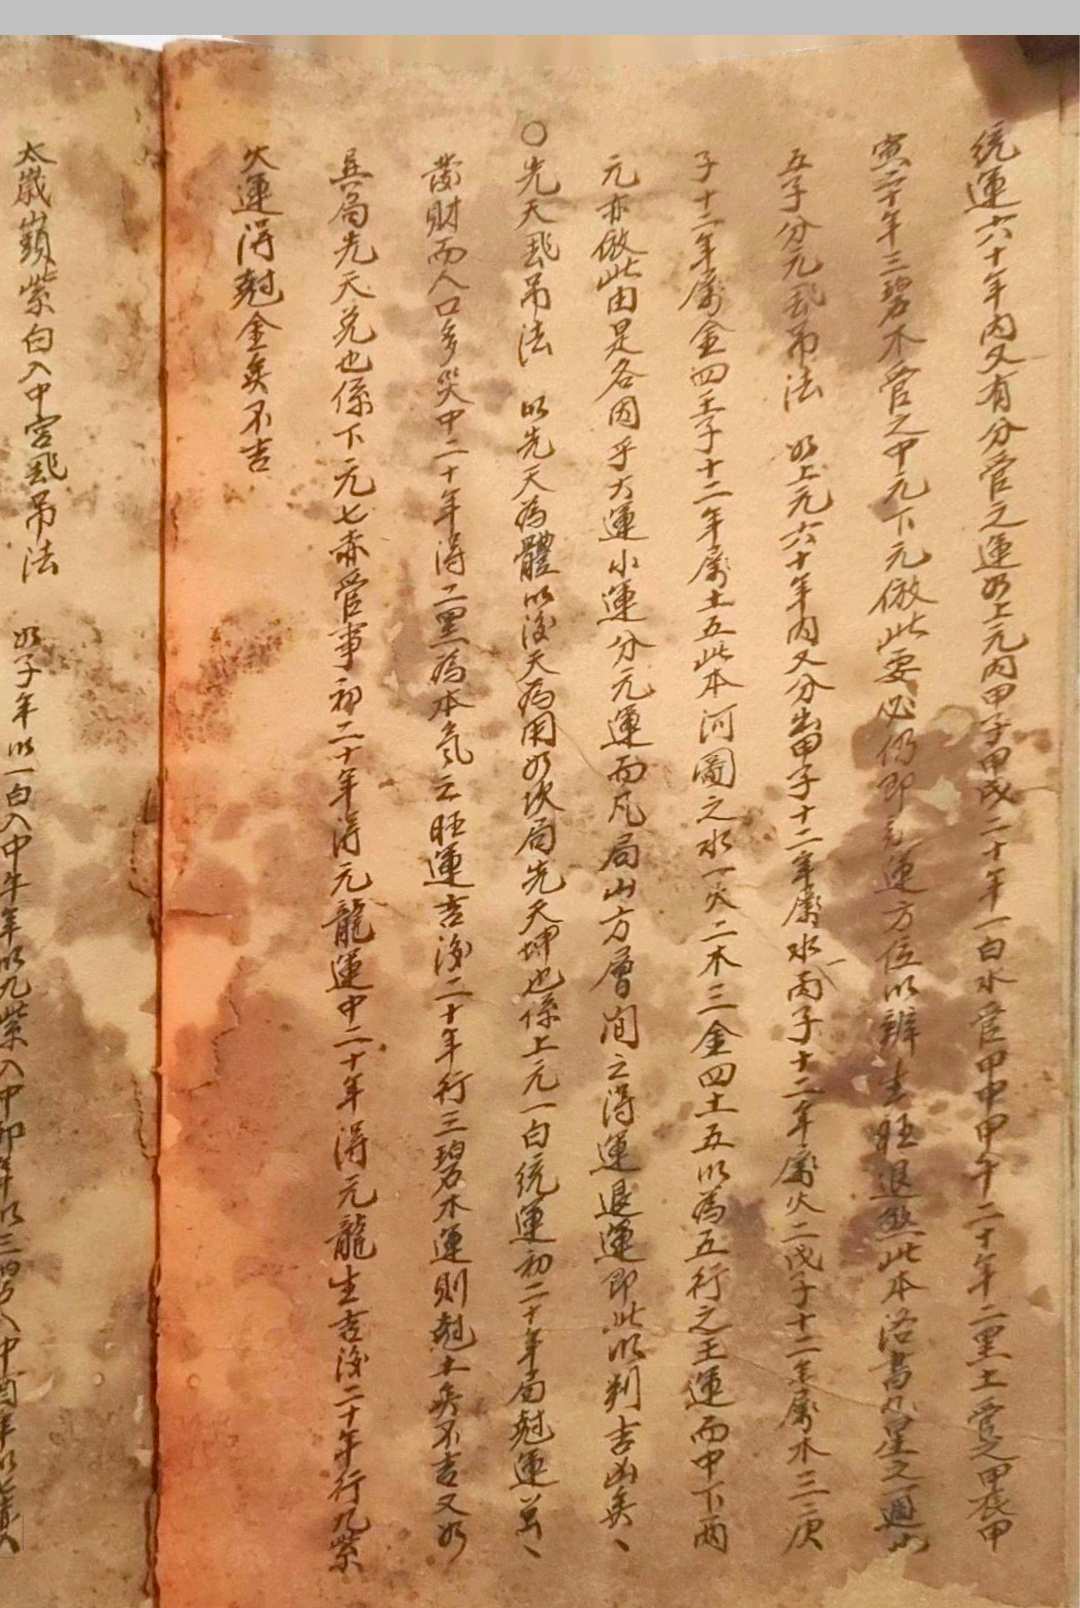 統運六十年內又有分管之運如上元內甲子甲戌二十年一白水管甲申甲午二十年二黑土管之甲辰甲
寅二十年三碧木管之中元下元倣此要必仍即元運方位以辨生旺退煞此本洛書九星之
五子分元飛吊法 如上元六十年內又分出甲子十二年屬水丙子十二年屬火二戊子十二年屬木三庚
子十二年屬金四壬子十二年屬土五此本河圖之水一火二木三金四土五以為五行之主運而中下兩
元亦倣此由是各因乎大運小運分元運而凡局山方層間之得運退運即此以判吉凶矣
○先天飛吊法 以先天為體以後天為用如坎局先天坤也係上元一白統運初二十年局尅運
發財而人口多哭中二十年得二黑為本氣之旺運吉後二十年行三碧木運則尅土矣不吉又如
兵局先天兌也係下元七赤管事初二十年得元龍運中二十年得元龍生吉後二十年行九紫
火運得尅金矣不吉
太歲顛紫白入中宮飛吊法 如子年以一白入中午年以九紫入中卯年以三